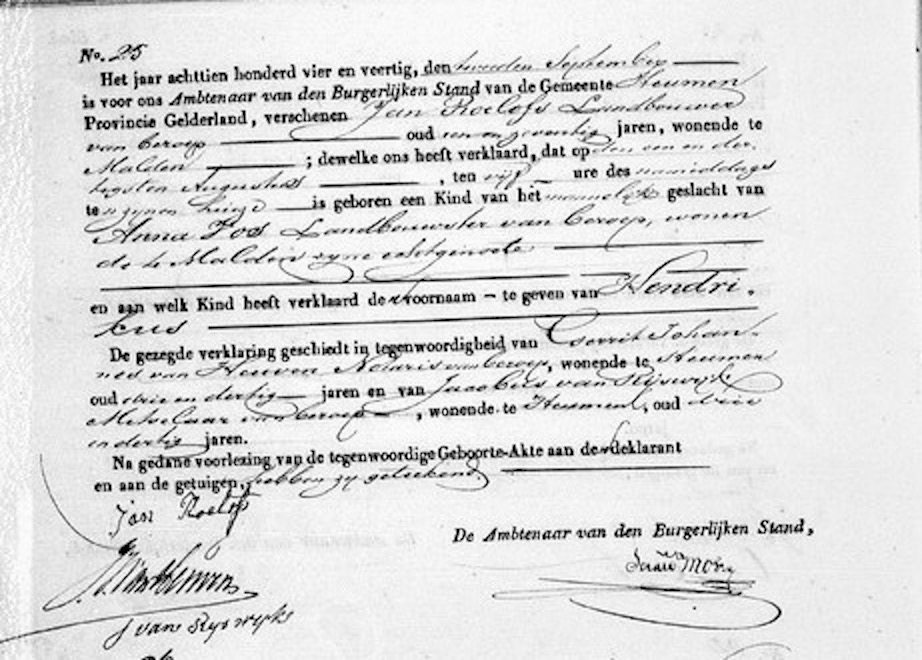 No. 25
Het jaar achttien honderd vier en veertig, den tweeden September
is voor ons Ambtenaar van den Burgerlijken Stand van de Gemeente Heumen
Provincie Gelderland, verschenen Jan Roelofs Landbouwer
van beroep oud een en zeventig jaren, wonende te
Malden ; dewelke ons heeft verklaard, dat op den een en der-
tigsten Augustus , ten vijf ure des namiddags
te zynen huize is geboren een Kind van het mannelyk geslacht van
Anna Vos Landbouwster van beroep, wonen
de te Malden zyne echtgenoote
en aan welk Kind heeft verklaard de voornaam te geven van Hendri-
kus
De gezegde verklaring geschiedt in tegenwoordigheid van Gerrit Johan-
nes van Heuven Notaris van beroep, wonende te Heumen
oud drie en dertig jaren en van Jacobus van Rijswijk
Metselaar van beroep , wonende te Heumen, oud drie
en dertig jaren.
Na gedane voorlezing van de tegenwoordige Geboorte-Akte aan de deklarant
en aan de getuigen, hebben zy geteekend
Jan Roelofs
De Ambtenaar van den Burgerlijken Stand,
van Heuven
J van Rijswijk